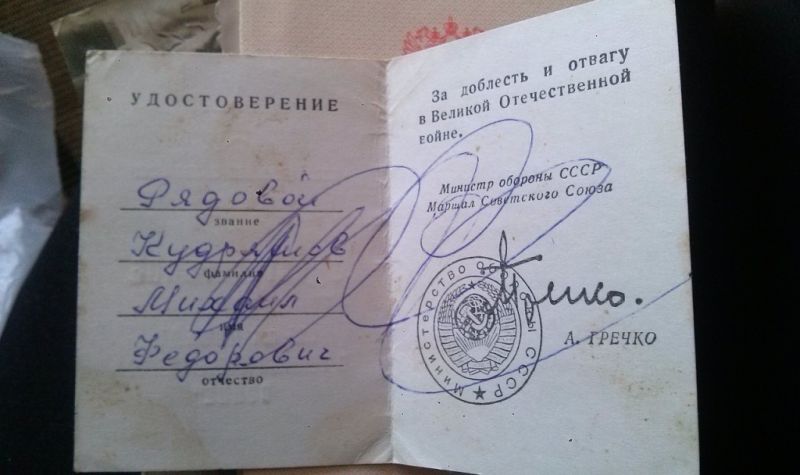 УДОСТОВЕРЕНИЕ
Рядовой
звание
Кудряшов
фамилия
Михаил
имя
Федорович
отчество
За доблесть и отвагу
в Великой Отечественной
войне.
Министр обороны СССР
Маршал Советского Союза
А. ГРЕЧКО
Министерство Обороны СССР